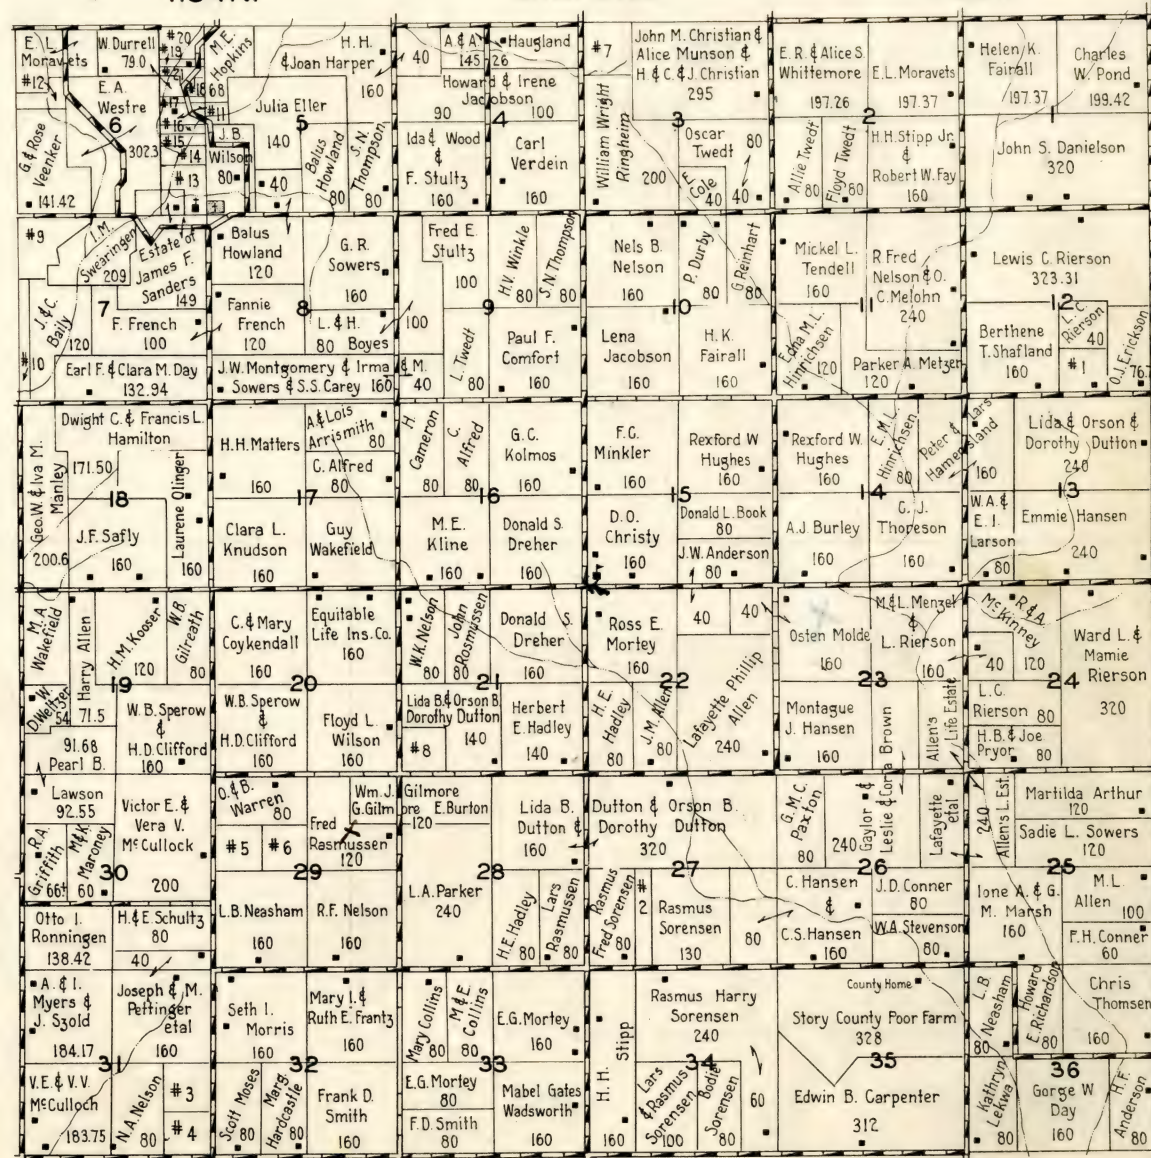 E. L.
Moravets
#12
W. Durrell
79.0
#20
#19
#21
M. E.
Hopkins
68
#18
#17
#11
#16
#15
#14
#13
E. A.
Westre
6
302.3
G. & Rose
Veenker
141.42
H. H.
& Joan Harper
160
Julia Eller
140
5
J. B.
Wilson
80
40
Balus
Howland
80
S. N.
Thompson
80
40
A. & A.
145
Haugland
26
Howard & Irene
Jacobson
90
100
4
Ida & Wood
&
F. Stultz
160
Carl
Verdein
160
#7
John M. Christian &
Alice Munson &
H & C. & J. Christian
295
3
William Wright
Ringheim
200
Oscar
Twedt
80
E.
Cole
40
40
E. R. & Alice S.
Whittemore
197.26
E. L. Moravets
197.37
2
Allie Twedt
80
Floyd Twedt
80
H. H. Stipp Jr.
&
Robert W. Fay
160
Helen K.
Fairall
197.37
Charles
W. Pond
199.42
1
John S. Danielson
320
#9
I. M.
Swearingen
209
Estate of
James F.
Sanders
149
7
J. & C.
Baily
120
F. French
100
#10
Earl F. & Clara M. Day
132.94
Balus
Howland
120
G. R.
Sowers
160
Fannie
French
120
8
L. & H.
80 Boyes
J. W. Montgomery & Irma & M.
Sowers & S. S. Carey 160
40
Fred E.
Stultz
100
H. V. Winkle
80
S. N. Thompson
80
9
100
L. Twedt
80
Paul F.
Comfort
160
Nels B.
Nelson
160
P. Durby
80
G. Reinhart
80
10
Lena
Jacobson
160
H. K.
Fairall
160
Mickel L.
Tendell
160
R. Fred
Nelson & O.
C. Melohn
240
11
Edna M. L.
Hinrichsen
120
Parker A. Metzer
120
Lewis C. Rierson
323.31
12
Berthene
T. Shafland
160
L. C.
Rierson
40
#1
O. J. Erickson
76.7
Dwight C. & Francis L.
Hamilton
171.50
Geo. W. & Iva M.
Manley
200.6
18
Laurene Olinger
160
J. F. Safly
160
H. H. Matters
160
A. & Lois
Arrismith
80
C. Alfred
80
17
Clara L.
Knudson
160
Guy
Wakefield
160
H.
Cameron
80
C.
Alfred
80
G. C.
Kolmos
160
16
M. E.
Kline
160
Donald S.
Dreher
160
F. C.
Minkler
160
Rexford W
Hughes
160
15
D. O.
Christy
160
Donald L. Book
80
J. W. Anderson
80
Rexford W.
Hughes
160
E. M. L.
Hinrichsen
80
Peter & Lars
Hamersland
160
14
A. J. Burley
160
C. J.
Thoreson
160
Lida & Orson &
Dorothy Dutton
240
13
W. A. &
E. I.
Larson
80
Emmie Hansen
240
M. A.
Wakefield
Harry Allen
71.5
H. M. Kooser
120
W. B.
Gilreath
80
19
W.
D. Weltzer
54
W. B. Sperow
&
H. D. Clifford
160
91.68
Pearl B.
C. & Mary
Coykendall
160
Equitable
Life Ins. Co.
160
20
W. B. Sperow
&
H. D. Clifford
160
Floyd L.
Wilson
160
W. K. Nelson
80
John
Rasmussen
80
Donald S.
Dreher
160
21
Lida B. & Orson B.
Dorothy Dutton
140
#8
Herbert
E. Hadley
140
Ross E.
Mortey
160
40
40
22
H. E.
Hadley
80
J. M. Allen
80
Lafayette Phillip
Allen
240
Osten Molde
160
M. & L. Menzel
&
L. Rierson
160
23
Montague
J. Hansen
160
Allen's
Life Estate
R. & A.
McKinney
40
120
Ward L. &
Mamie
Rierson
320
24
L. C.
Rierson 80
H. B. & Joe
Pryor 80
Lawson
92.55
Victor E. &
Vera V.
McCullock
200
R. A.
Griffith
66+
M & K
Maroney
60
30
Otto I.
Ronningen
138.42
H. & E. Schultz
80
40
O. & B.
Warren
80
#5
#6
Fred
Rasmussen
120
Wm. J.
G. Gilm
29
L. B. Neasham
160
R. F. Nelson
160
Gilmore
ore E. Burton
120
Lida B.
Dutton &
160
28
L. A. Parker
240
H. E. Hadley
80
Lars
Rasmussen
80
Dutton & Orson B.
Dorothy Dutton
320
27
Rasmus
Fred Sorensen
80
#
2
Rasmus
Sorensen
130
80
G. M. C.
Paxton
80
240
Gaylor &
Leslie & Corra Brown
Lafayette
etal
26
C. Hansen
&
C. S. Hansen
160
J. D. Conner
80
W. A. Stevenson
80
240
Allen's L. Est.
Martilda Arthur
120
Sadie L. Sowers
120
25
Ione A. & G.
M. Marsh
160
M. L.
Allen
100
F. H. Conner
60
A. & I.
Myers &
J. Szold
184.17
Joseph & M.
Pettinger
etal
160
31
V. E. & V. V.
McCulloch
183.75
N. A. Nelson
80
#3
#4
Seth I.
Morris
160
Mary I. &
Ruth E. Frantz
160
32
Scott Moses
80
Marg.
Hardcastle
80
Frank D.
Smith
160
Mary Collins
80
M & E.
Collins
80
E. G. Mortey
160
33
E. G. Mortey
80
F. D. Smith
80
Mabel Gates
Wadsworth
160
H. H. Stipp
160
Rasmus Harry
Sorensen
240
34
Lars
& Rasmus
Sorensen
100
Bodie
Sorensen
80
60
County Home
Story County Poor Farm
328
35
Edwin B. Carpenter
312
L. B.
Neasham
80
Howard
E. Richardson
80
Chris
Thomsen
160
36
Kathryn
Lekwa
80
Gorge W
Day
160
H. F.
Anderson
80